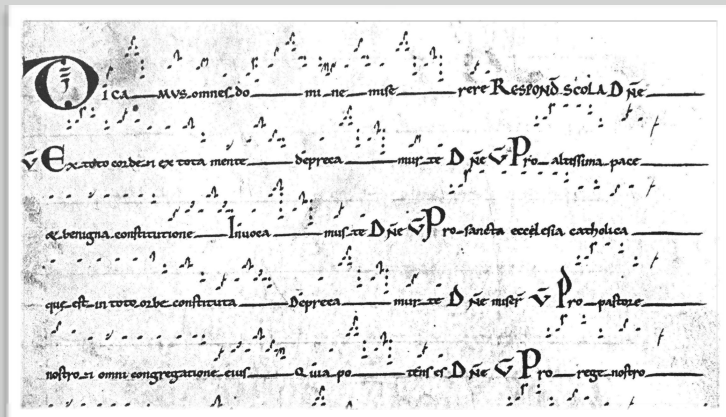 DICA MUS omnes do mi ne mise rere RESPOND̄ SCOLA D n̄e
V̄ Ex toto corde & ex tota mente dēpreca mur te D n̄e V̄ Pro altissima pace
& benigna constitutione Invoca mus te D n̄e V̄ Pro sancta ecclesia catholica
que est in toto orbe constituta Dēpreca mur te D n̄e miser̄ V̄ Pro pastore
nostro & omni congregatione eius Quia po tens es D n̄e V̄ Pro rege nostro